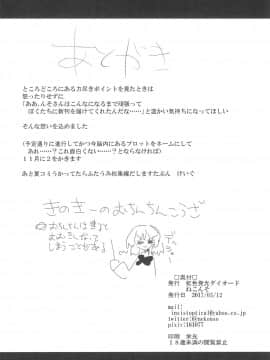 あとがき
ところどころにある力尽きポイントを見たときは
怒ったりせずに
「ああ、んそさんはこんなになるまで頑張って
ぼくたちに新刊を届けてくれたんだな……」と温かい気持ちになってほしい
そんな想いを込めました
(予定通りに進行してかつ今脳内にあるプロットをネームにして
あれ……？これ面白くない……？とならなければ)
11月に2をかきます
あと夏コミうかってたらふたうみ総集編だしますたぶん けいぐ
きのきーの
おちんちんこうざ
おちんちんは
〇奥付〇
発行 虹色発光ダイオード
ねこんそ
発行日 2017/03/12
mail:
twitter:@nekonso
pixiv:161077
印刷 栄光
18歳未満の閲覧禁止